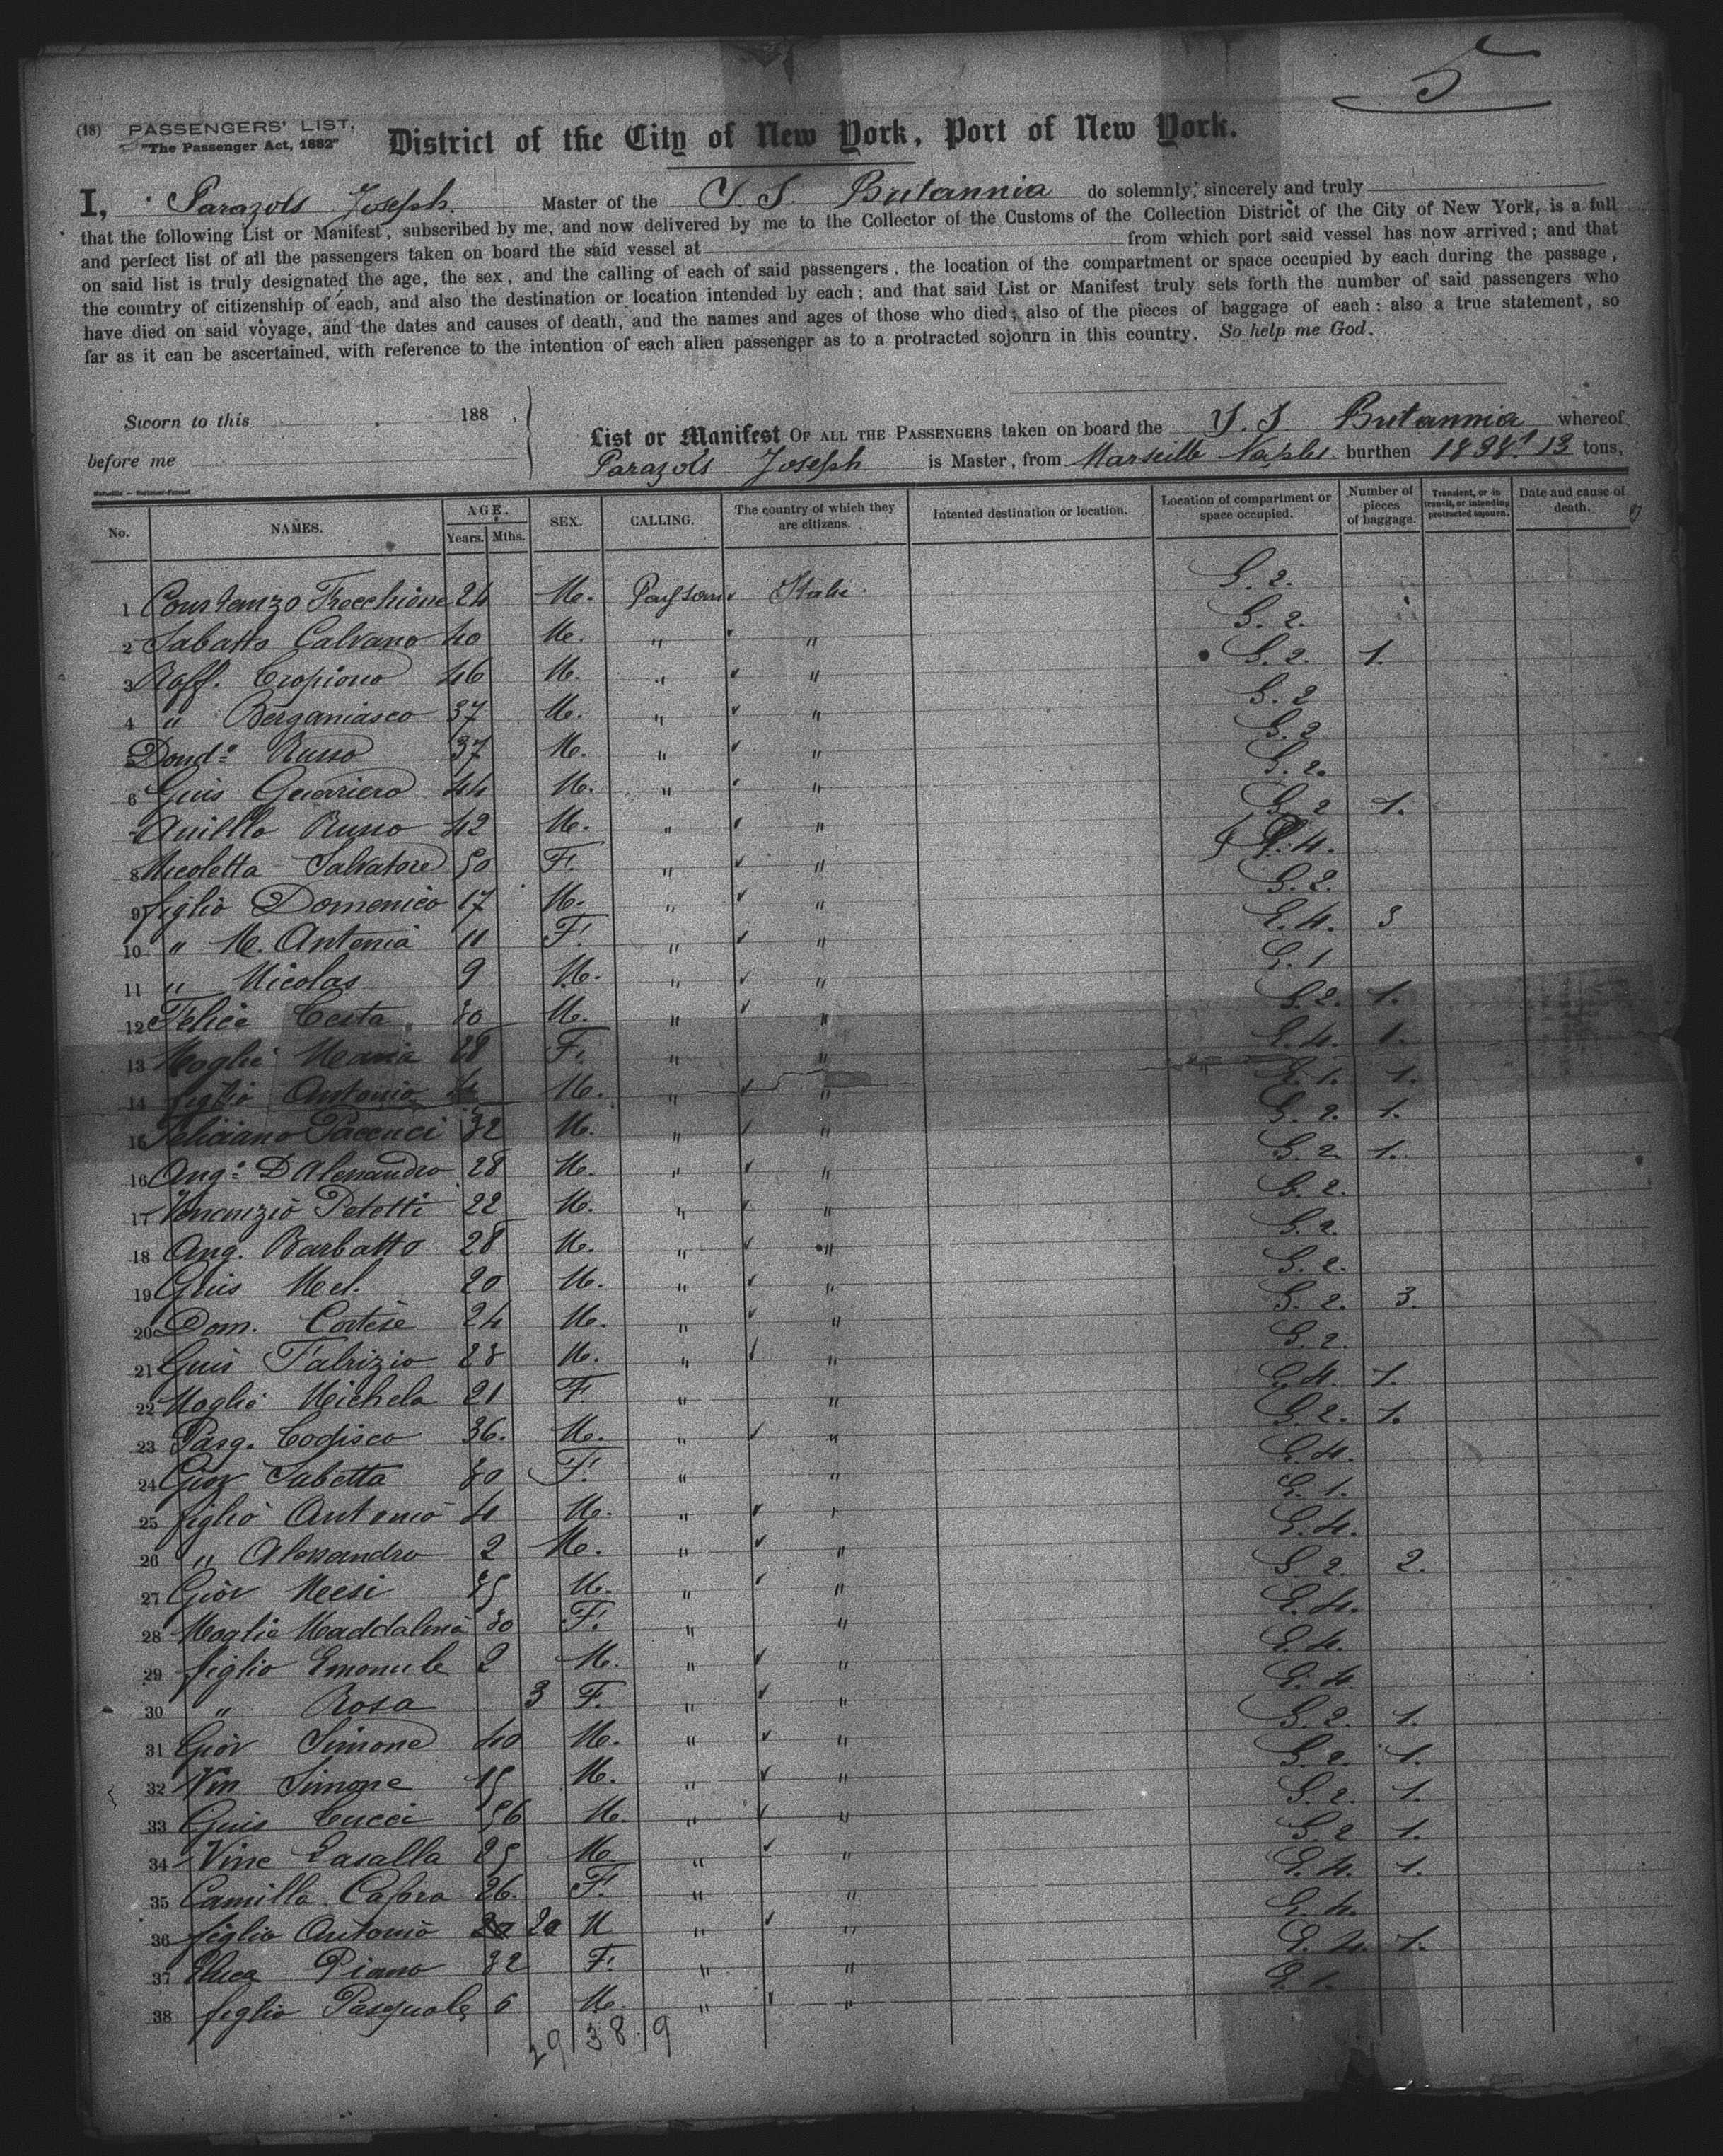 5
(18) PASSENGERS' LIST.
"The Passenger Act, 1882"
District of the City of New York, Port of New York.
I, Parazols Joseph. Master of the S. S. Britannia do solemnly, sincerely and truly
that the following List or Manifest, subscribed by me, and now delivered by me to the Collector of the Customs of the Collection District of the City of New York, is a full
and perfect list of all the passengers taken on board the said vessel at from which port said vessel has now arrived; and that
on said list is truly designated the age, the sex, and the calling of each of said passengers, the location of the compartment or space occupied by each during the passage,
the country of citizenship of each, and also the destination or location intended by each; and that said List or Manifest truly sets forth the number of said passengers who
have died on said voyage, and the dates and causes of death, and the names and ages of those who died; also of the pieces of baggage of each: also a true statement, so
far as it can be ascertained, with reference to the intention of each alien passenger as to a protracted sojourn in this country. So help me God.
Sworn to this 188 ,
before me
List or Manifest OF ALL THE PASSENGERS taken on board the S. S Britannia whereof
Parazols Joseph is Master, from Marseille Naples burthen tons,
No. NAMES. AGE. Years. Mths. SEX. CALLING. The country of which they are citizens. Intented destination or location. Location of compartment or space occupied. Number of pieces of baggage. Transient, or in transit, or intending protracted sojourn. Date and cause of death.
1 Constanzo Frecchione 24 M. Paysan Italie G. 2.
2 Sabatto Calvano 40 M. " " G. 2.
3 Raff. Cropiono 46 M. " " G. 2. 1.
4 " Berganiasco 37 M. " " G. 2
Dond° Russo 37 M. " " G. 2
6 Guis Guerriero 44 M. " " G. 2.
Aniello Russo 42 M. " " G. 2 1.
8 Nicoletta Salvatore 50 F. " " 4.
9 figlio Domenico 17 M. " " G. 2.
10 " M. Antonia 11 F. " " E. 4. 3
11 " Nicolas 9 M. " " E. 1
12 Felice Cesta 30 M. " " G. 2. 1.
13 Moglie Maria 28 F. " " E. 4. 1.
14 figlio Antonio 4 M. " " E. 1. 1.
15 Feliciano Paccuci 32 M. " " G. 2. 1.
16 Ang° D'Alessandro 28 M. " " G. 2 1.
17 Venanzio Petetti 22 M. " " G. 2.
18 Ang. Barbatto 28 M. " " G. 2.
19 Guis Mel. 20 M. " " G. 2.
20 Dom. Cortese 24 M. " " G. 2. 3.
21 Guis Fabrizio 28 M. " " G. 2.
22 Moglie Michela 21 F. " " E. 4. 1.
23 Pasq. Codisco 36. M. " " G. 2. 1.
24 Giov Sabetta 30 F. " " E. 4.
25 figlio Antonio 4 M. " " E. 1.
26 " Alessandro 2 M. " " E. 4.
27 Giov Meesi 35 M. " " G. 2. 2.
28 Moglie Maddalena 30 F. " " E. 4.
29 figlio Emanuele 2 M. " " E. 4.
30 " Rosa 3 F. " " E. 4.
31 Giov Simone 40 M. " " G. 2. 1.
32 Vin Simone 15 M. " " G. 2. 1.
33 Guis Cucci 56 M. " " G. 2. 1.
34 Vinc Lasalla 25 M. " " G. 2 1.
35 Camilla Capra 26. F. " " E. 4. 1.
36 figlio Antonio 20 M " " E. 4.
37 Piano 32 F. " " E. 4. 1.
38 figlio Pasquale 6 M. " " E. 1.
29 38 9